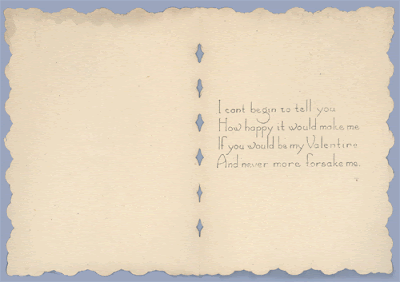 I cant begin to tell you
How happy it would make me
If you would be my Valentine
And never more forsake me.